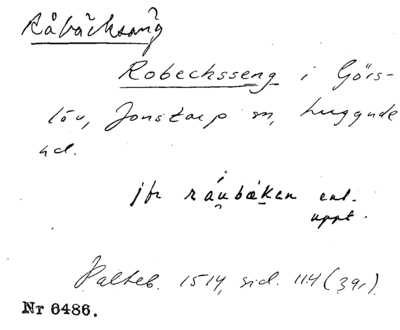 Råbäcksäng
Robechsseng i Görs-
löv, Jonstorp sn, Luggude
hd.
jfr råubæken enl.
uppt.
Palteb. 1514, sid. 114 (3gr).
Nr 6486.